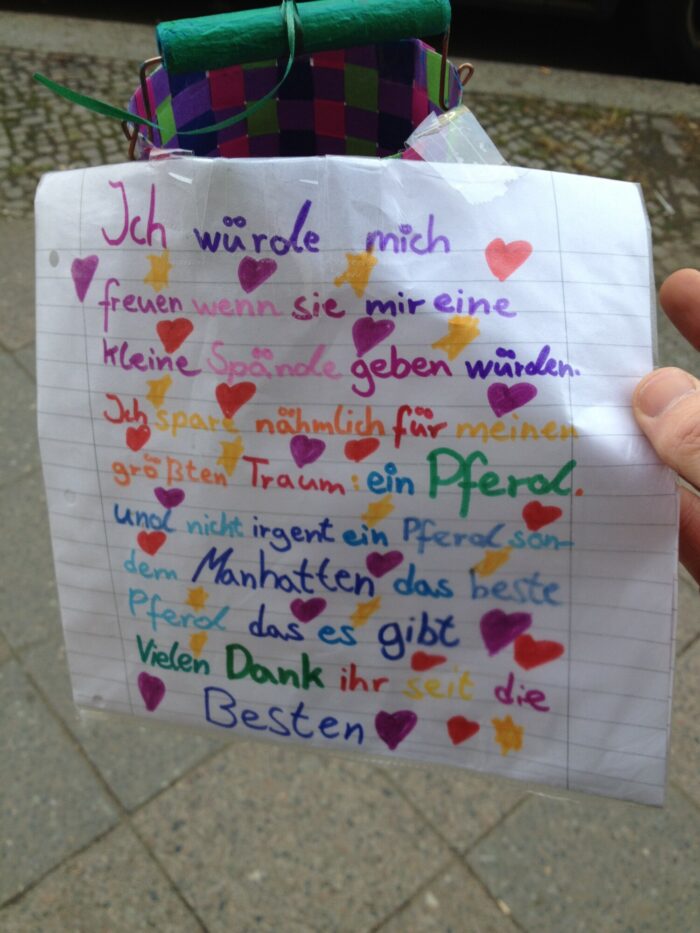 Ich würde mich
freuen wenn sie mir eine
kleine Spände geben würden.
Ich spare nähmlich für meinen
größten Traum: ein Pferd.
und nicht irgent ein Pferd son-
dern Manhatten das beste
Pferd das es gibt
Vielen Dank ihr seit die
Besten